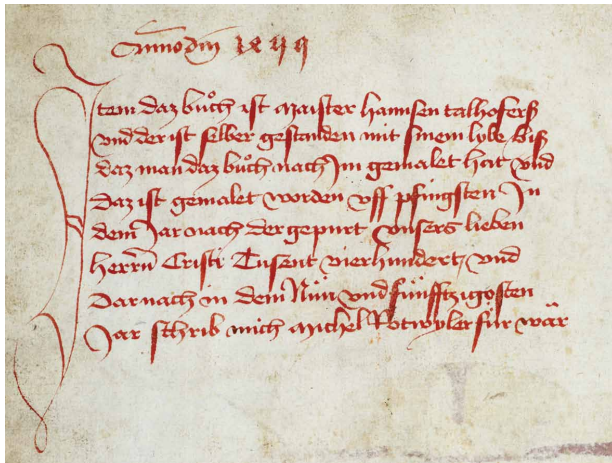 Item daz bůch ist maister hannsen talhofersß
vnd der ist selber gestanden mit sinem lybe biß
daz man daz bůch nach Im gemalet hat vnd
Daz ist gemalet worden vff pfingsten In
dem Jar nach der gepurt vnsers lieben
herrn̄ Cristi Tusent vierhundert vnd
Darnach in dem Nün vnd fünfftzigosten
Jar schrib mich michel Rotwyler für wär